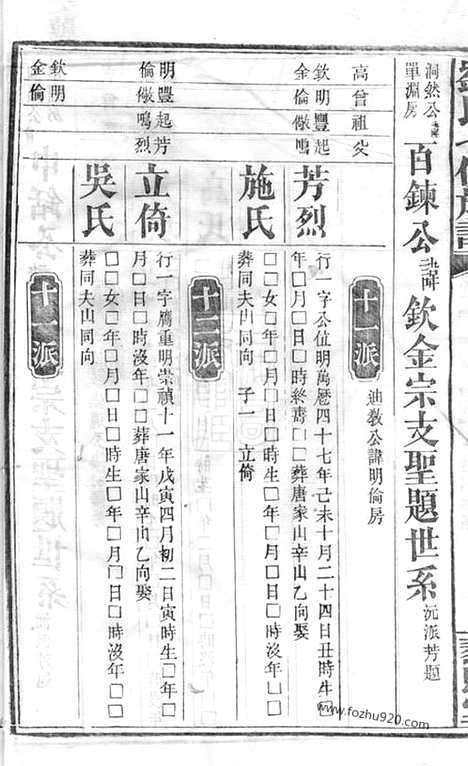 洞然公諱
單淵房
百鍊公諱欽金宗支聖題世系
沅派芳題
高曾祖父
十一派
迪教公諱明倫房
欽明豐起
金倫儆鳴
芳烈
行一字公位明萬曆四十七年己未十月二十四日丑時生□
年□月□日□時終壽□□葬唐家山辛山乙向娶
施氏
□□女□年□月□日□時生□年□月□日□時沒年□□
葬同夫山同向 子一 立倚
十二派
明豐起芳
倫儆鳴烈
立倚
行一字膺重明崇禎十一年戊寅四月初二日寅時生□年□
月□日□時沒年□□葬唐家山辛山乙向娶
吳氏
□□女□年□月□日□時生□年□月□日□時沒年□□
葬同夫山同向
十一派
欽明
金倫
www.fozhu920.com